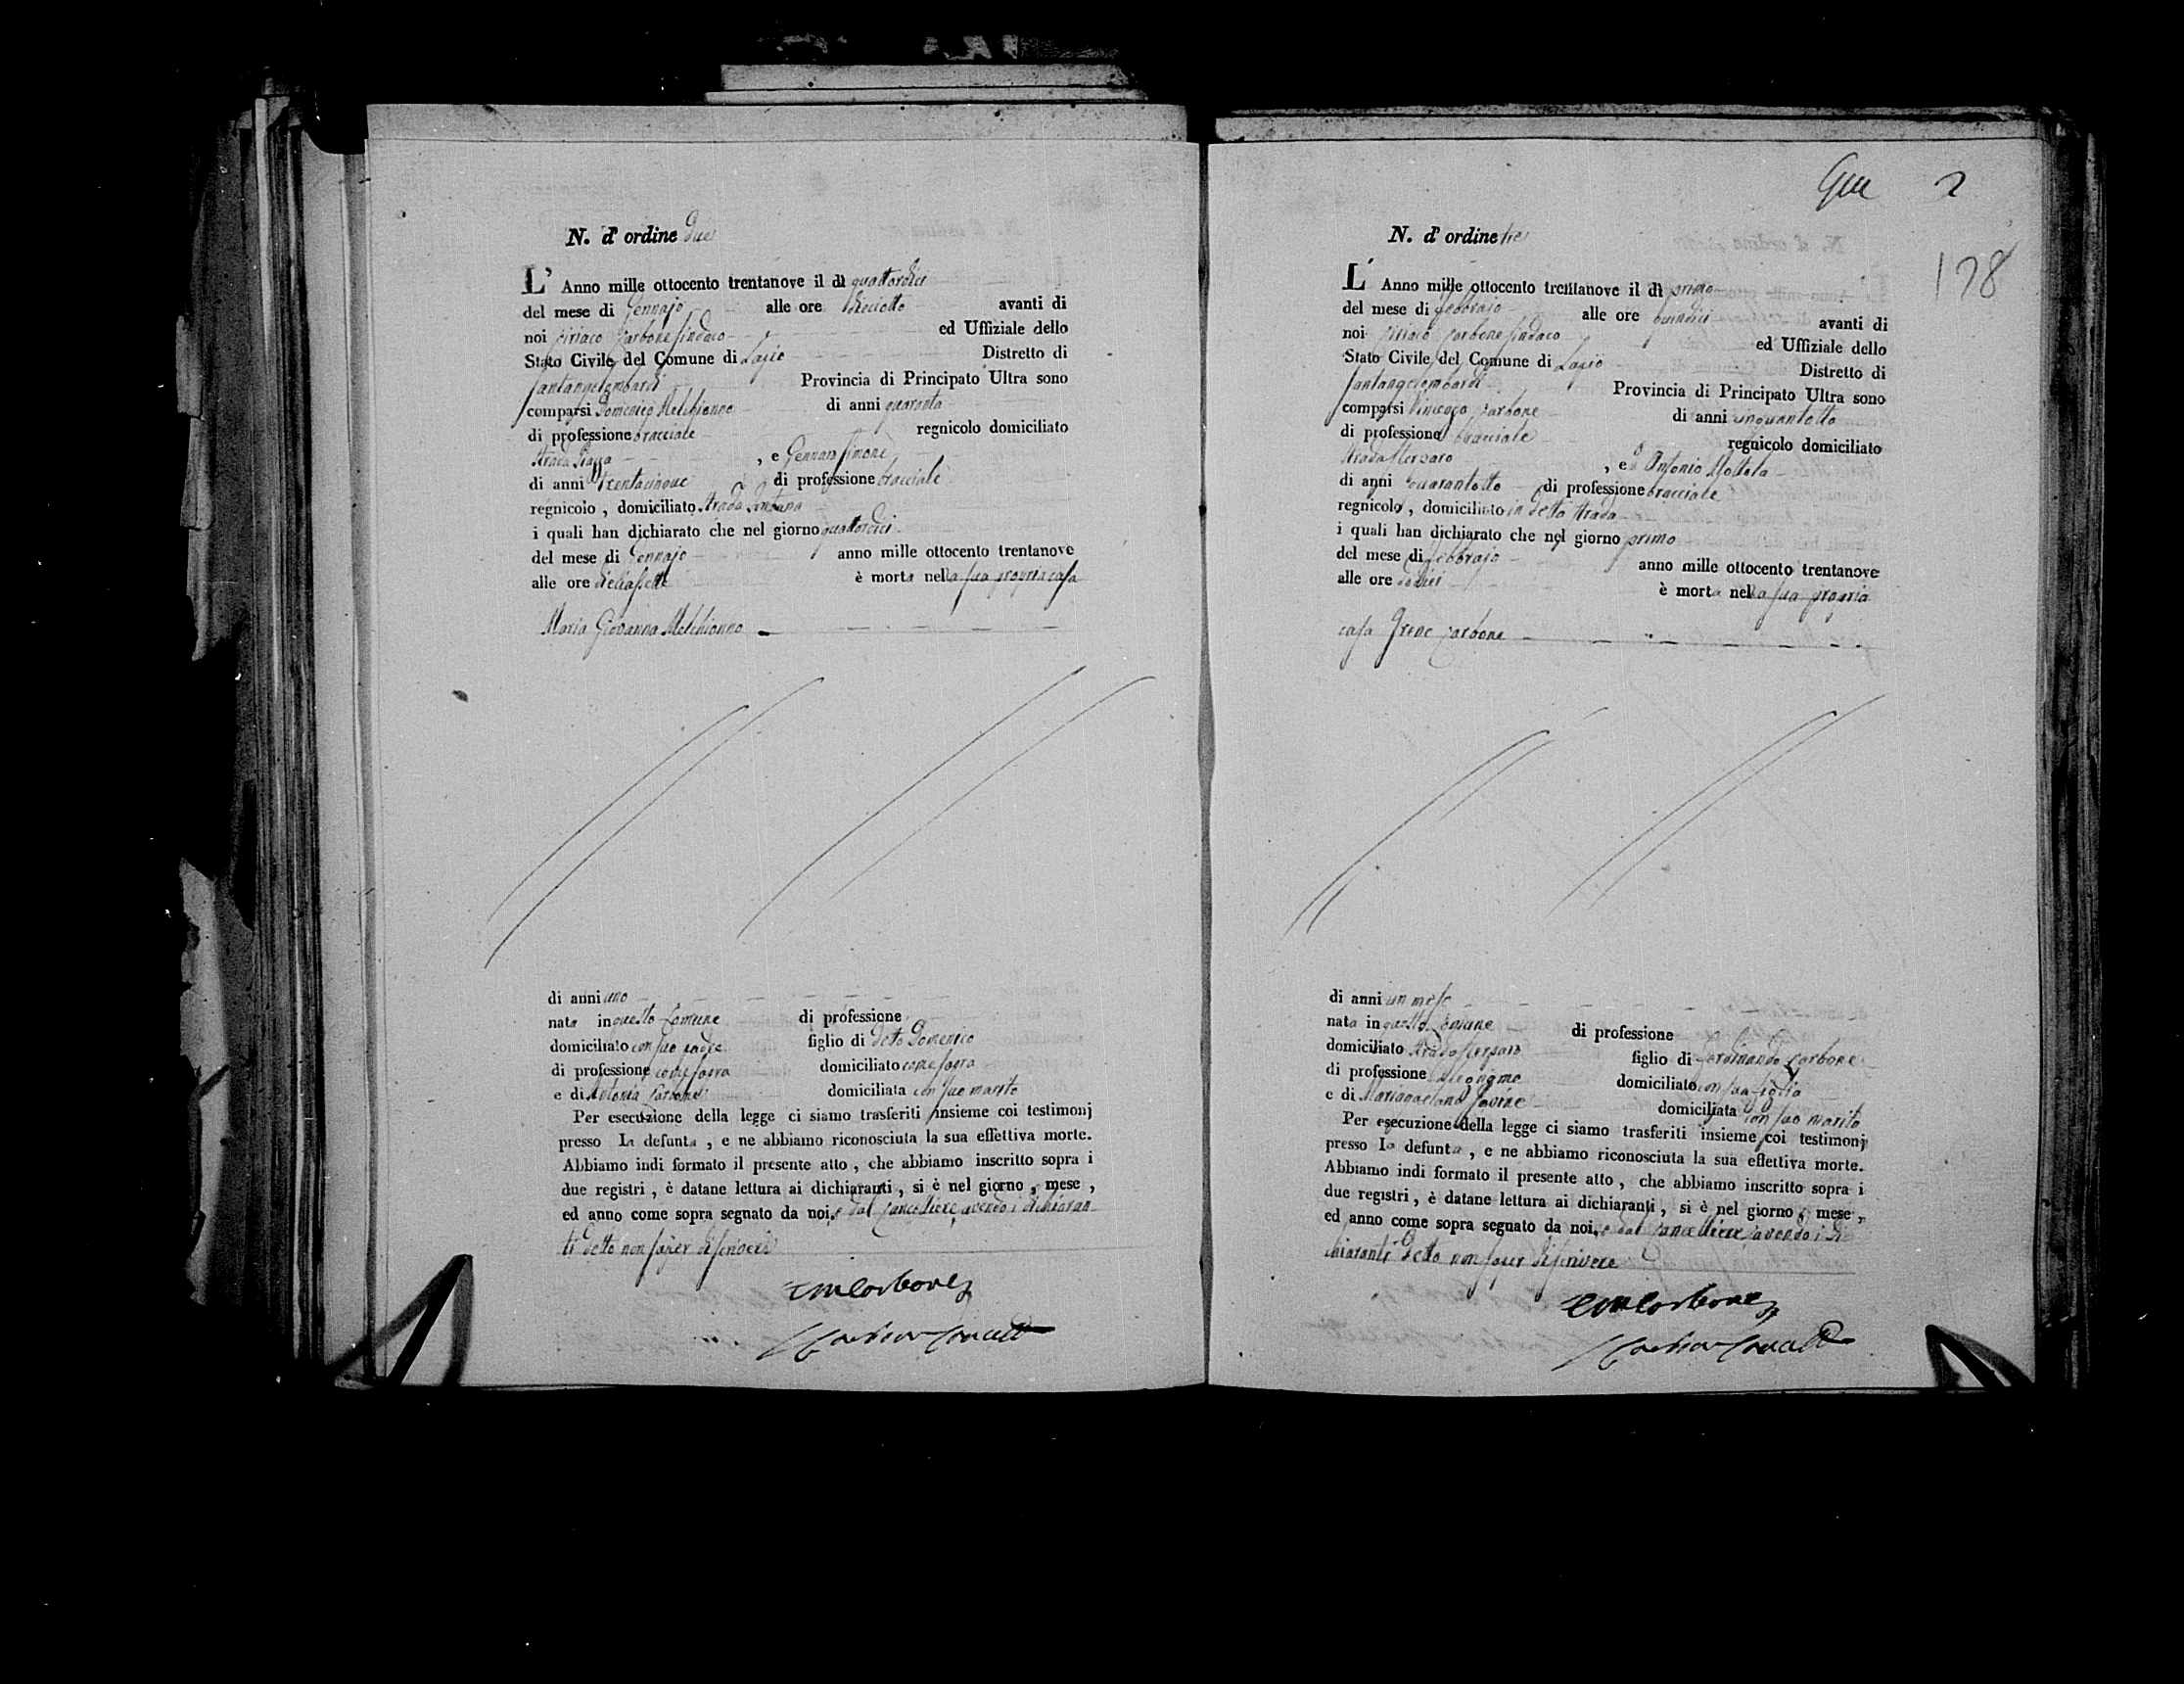 N. d' ordine due
L' Anno mille ottocento trentanove il dì quattordici
del mese di Gennajo alle ore dieciotto avanti di
noi Ciriaco Carbone Sindaco ed Uffiziale dello
Stato Civile del Comune di Lapio Distretto di
Santangelombardi Provincia di Principato Ultra sono
comparsi Domenico Melchionno di anni quaranta
di professione bracciale regnicolo domiciliato
Strada Piazza , e Gennaro Simone
di anni trentacinque di professione bracciale
regnicolo , domiciliato Strada
i quali han dichiarato che nel giorno quattordici
del mese di Gennajo anno mille ottocento trentanove
alle ore diciassette è morta nella sua propria casa
Maria Giovanna Melchionno
di anni uno
nata in questo Comune di professione
domiciliato con suo padre figlio di detto Domenico
di professione come sopra domiciliato come sopra
e di Antonia Carbone domiciliata con suo marito
Per esecuzione della legge ci siamo trasferiti insieme coi testimonj
presso La defunta , e ne abbiamo riconosciuta la sua effettiva morte.
Abbiamo indi formato il presente atto , che abbiamo inscritto sopra i
due registri , è datane lettura ai dichiaranti , si è nel giorno , mese ,
ed anno come sopra segnato da noi, e dal Cancelliere avendo i dichiaran
ti detto non saper di scrivere
Carbone
Gen 2
178
N. d' ordine tre
L' Anno mille ottocento trentanove il dì primo
del mese di Febbrajo alle ore quindici avanti di
noi Ciriaco Carbone Sindaco ed Uffiziale dello
Stato Civile del Comune di Lapio Distretto di
Santangelombardi Provincia di Principato Ultra sono
comparsi Vincenzo Carbone di anni cinquantotto
di professione bracciale regnicolo domiciliato
Strada , e Antonio Mottola
di anni quarantotto di professione bracciale
regnicolo , domiciliato in detta Strada
i quali han dichiarato che nel giorno primo
del mese di Febbrajo anno mille ottocento trentanove
alle ore dodici è morta nella sua propria
casa Irene Carbone
di anni un mese
nata in questo Comune di professione
domiciliato Strada figlio di Ferdinando Carbone
di professione domiciliato con sua figlia
e di domiciliata con suo marito
Per esecuzione della legge ci siamo trasferiti insieme coi testimonj
presso La defunta , e ne abbiamo riconosciuta la sua effettiva morte.
Abbiamo indi formato il presente atto , che abbiamo inscritto sopra i
due registri , è datane lettura ai dichiaranti , si è nel giorno , mese ,
ed anno come sopra segnato da noi, e dal Cancelliere avendo i di
chiaranti detto non saper di scrivere
Carbone